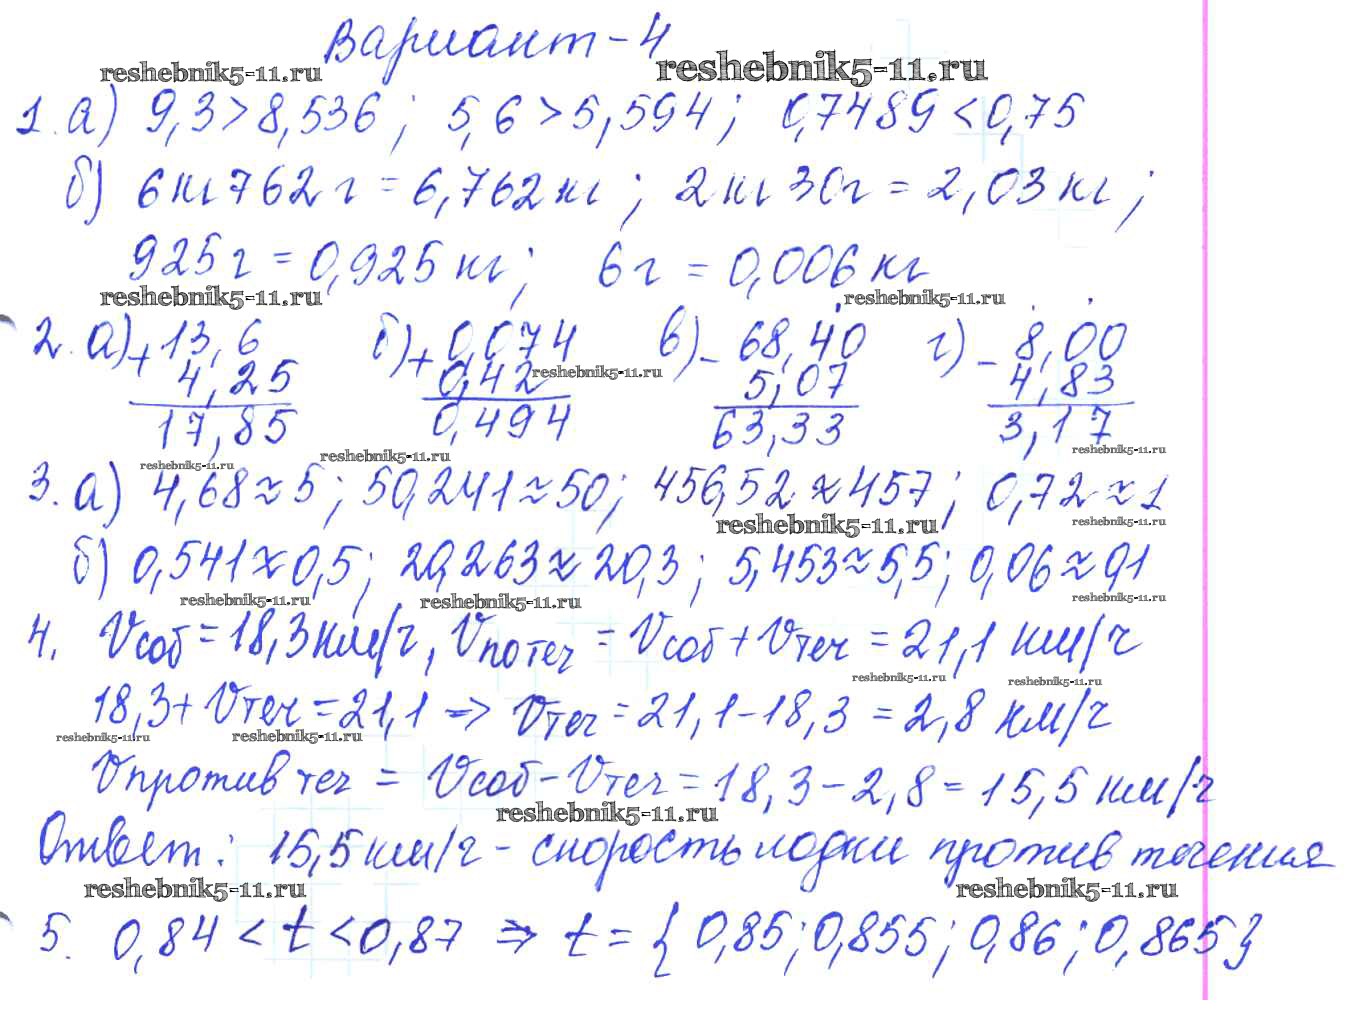 Вариант - 4
reshebnik5-11.ru reshebnik5-11.ru
1. а) 9,3 > 8,536; 5,6 > 5,594; 0,7489 < 0,75
б) 6 кг 762 г = 6,762 кг; 2 кг 30 г = 2,03 кг;
925 г = 0,925 кг; 6 г = 0,006 кг
reshebnik5-11.ru reshebnik5-11.ru
2. а) + 13,6 б) + 0,074 в) - 68,40 г) - 8,00
4,25 0,42 5,07 4,83
reshebnik5-11.ru
17,85 0,494 63,33 3,17
reshebnik5-11.ru reshebnik5-11.ru reshebnik5-11.ru
3. а) 4,68 ≈ 5; 50,241 ≈ 50; 456,52 ≈ 457; 0,72 ≈ 1
reshebnik5-11.ru reshebnik5-11.ru
б) 0,541 ≈ 0,5; 20,263 ≈ 20,3; 5,453 ≈ 5,5; 0,06 ≈ 0,1
reshebnik5-11.ru reshebnik5-11.ru reshebnik5-11.ru
4. Vсоб = 18,3 км/ч, Vпо теч = Vсоб + Vтеч = 21,1 км/ч
reshebnik5-11.ru reshebnik5-11.ru
18,3 + Vтеч = 21,1 => Vтеч = 21,1 - 18,3 = 2,8 км/ч
reshebnik5-11.ru reshebnik5-11.ru
Vпротив теч = Vсоб - Vтеч = 18,3 - 2,8 = 15,5 км/ч
reshebnik5-11.ru
Ответ: 15,5 км/ч - скорость лодки против течения
reshebnik5-11.ru reshebnik5-11.ru
5. 0,84 < t < 0,87 => t = {0,85; 0,855; 0,86; 0,865}